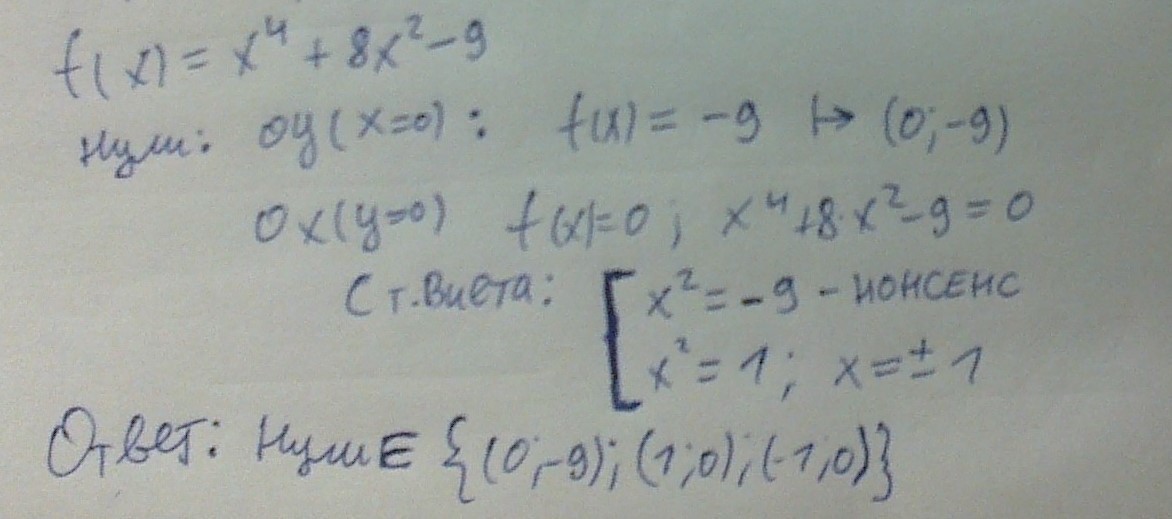 f(x) = x⁴ + 8x² - 9
Нули: oy (x=0) : f(x) = -9 ↦ (0;-9)
Ox (y=0) f(x)=0 ; x⁴+8·x²-9=0
С т. Виета: [ x² = -9 - нонсенс
x² = 1 ; x = ± 1
Ответ: Нули ∈ {(0;-9);(1;0);(-1;0)}